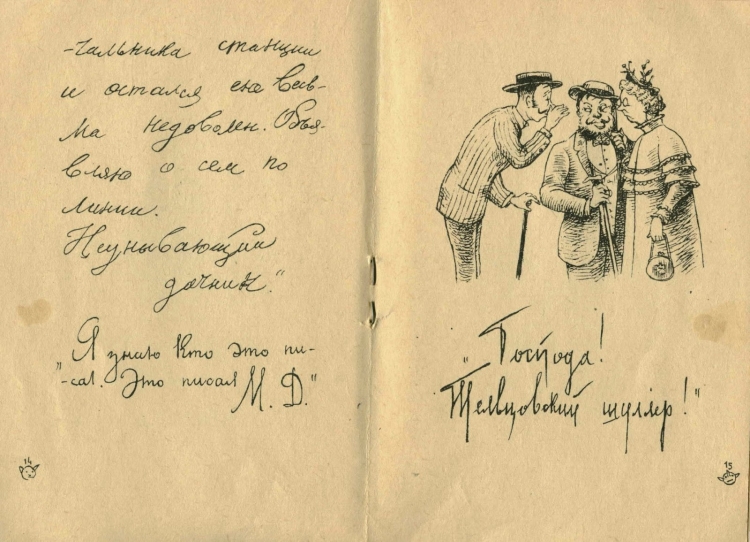 -чальника станции
и остался ею весь-
ма недоволен. Объя-
вляю о сем по
линии.
Неунывающий
дачник."
„Я знаю кто это пи-
-сал. Это писал
М. Д."
14
„Господа!
Тельцовский шуллер!"
15